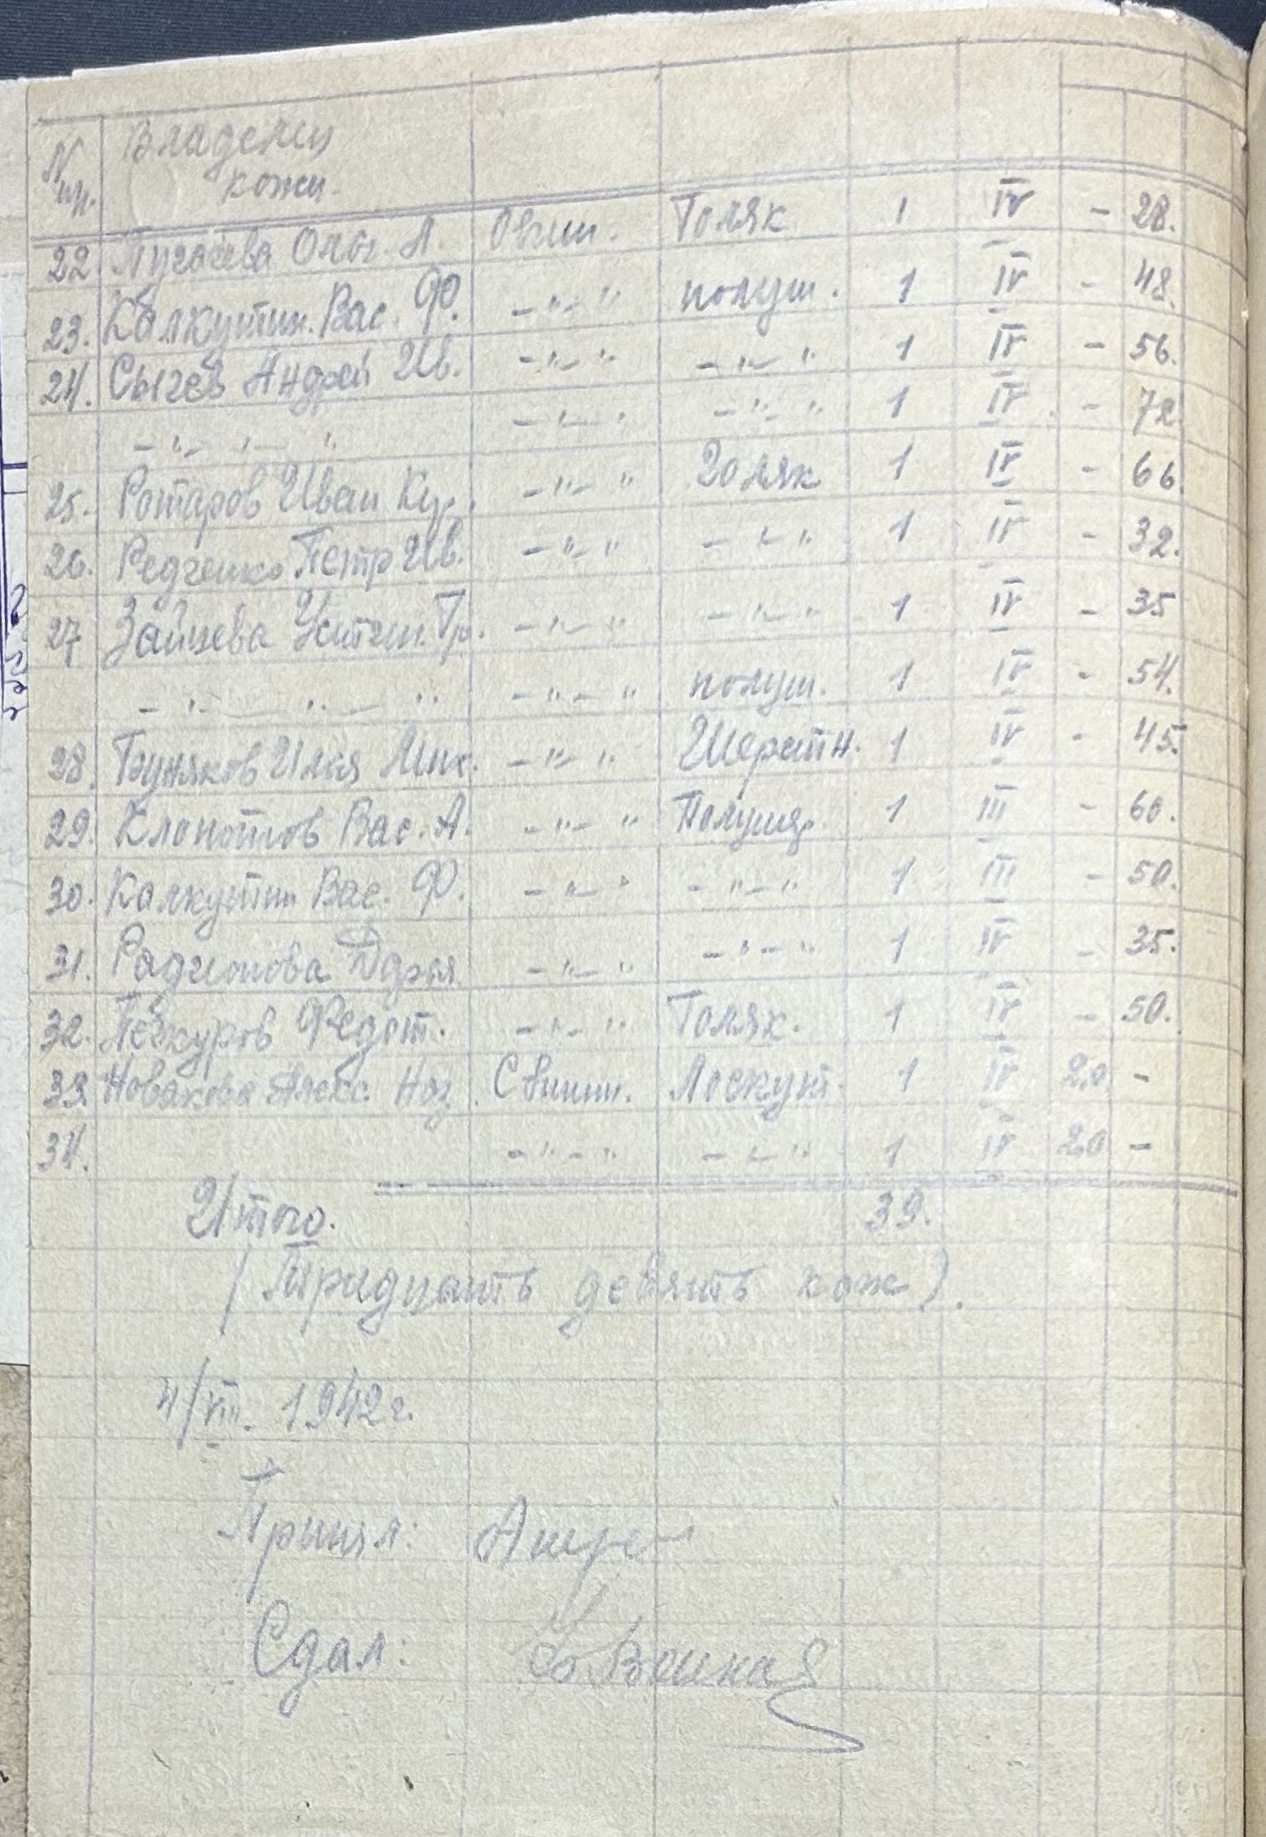 N п.п. Владелец
кожи.
22 Пугачева Ольг. А. Овчин. Голяк 1 IV - 28.
23. Калкутин. Вас. Ф. -"-" полуш. 1 IV - 48.
24. Сычев Андрей Ив. -"-" -"-" 1 IV - 56.
-"- "-" -"-" -"-" 1 IV - 72
25. Ротаров Иван -"-" Голяк 1 IV - 66
26. Редченко Петр Ив. -"-" -"-" 1 IV - 32.
27 Зайцева Устин. Гр. -"-" -"-" 1 IV - 35
-"- "-" -"-" полуш. 1 IV - 54.
28. Илья Мих. -"-" Шерстн. 1 IV - 45.
29. Клопотов Вас. А. -"-" Полуш. 1 III - 60.
30. Калкутин Вас. Ф. -"-" -"-" 1 III - 50.
31. Радионова Дарья -"-" -"-" 1 IV - 35.
32. Федот. -"-" Голяк. 1 IV - 50.
33. Новакова Алекс. Свинин. Лоскут. 1 IV 20 -
34. -"-" -"-" 1 IV 20 -
Итого. 39.
(Тридцать девять кож).
4/VIII. 1942 г.
Принял:
Сдал: